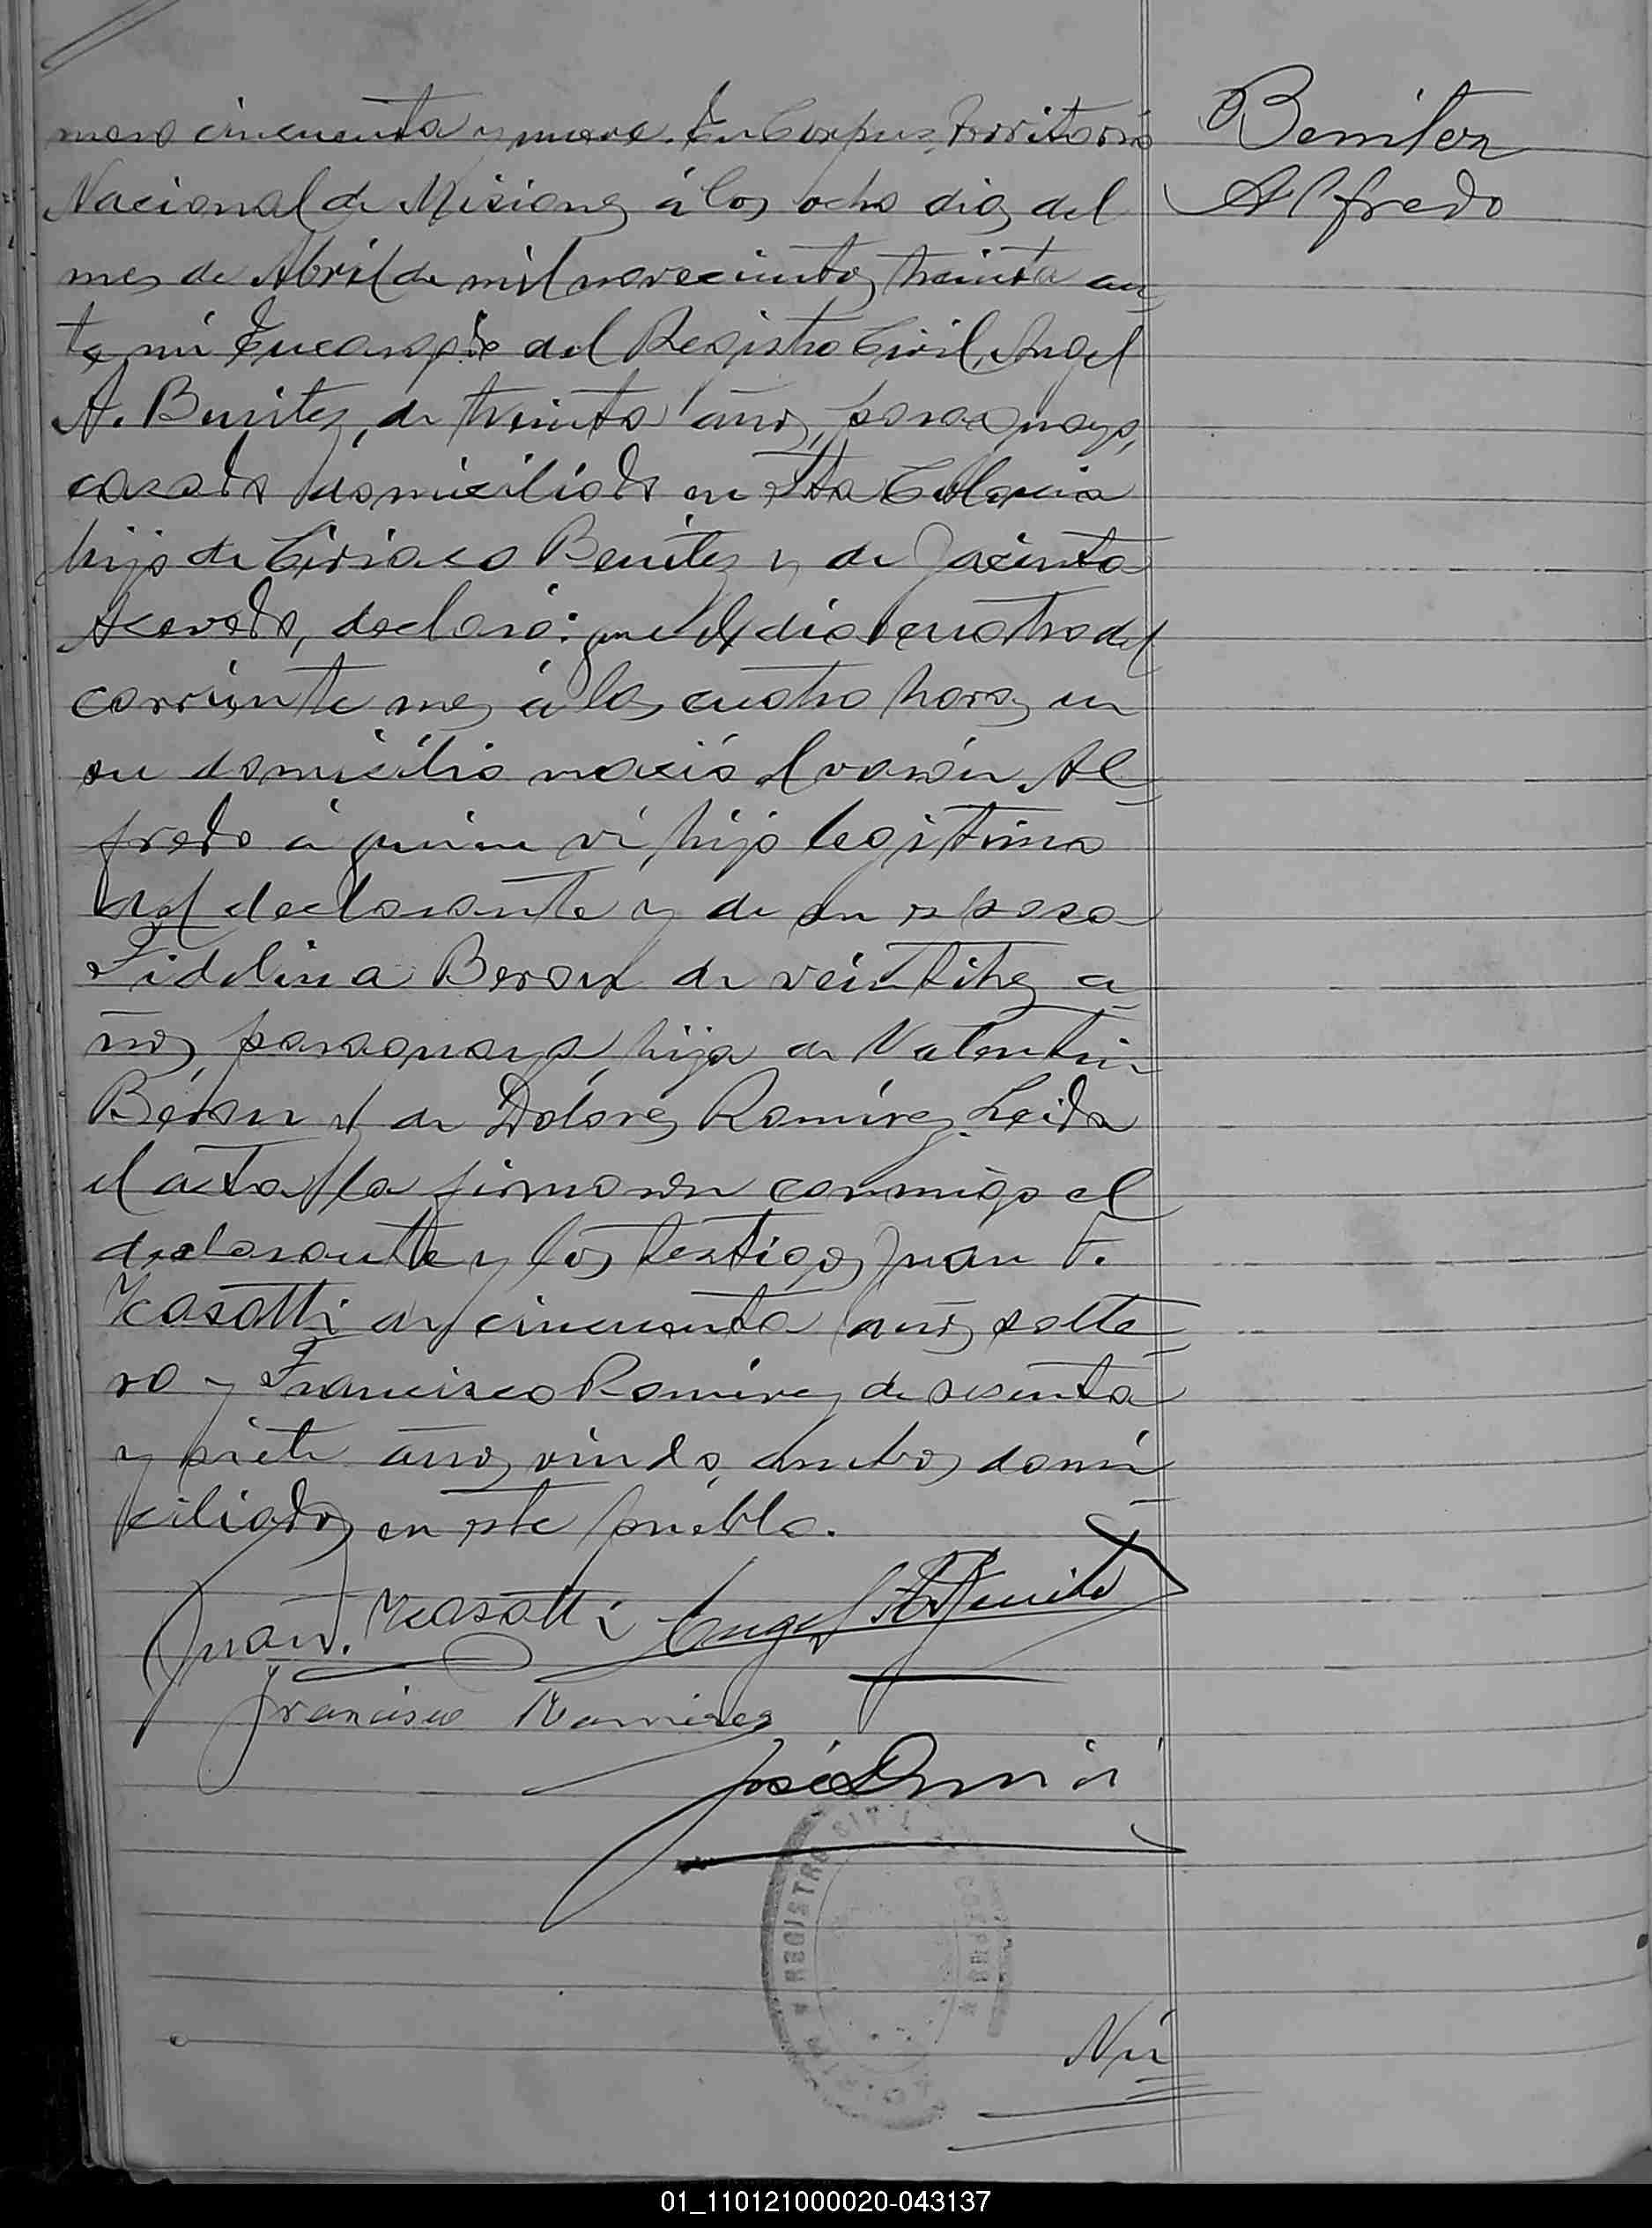 mero cincuenta y nueve. En Corpus, Territorio
Nacional de Misiones á los ocho dias del
mes de Abril de mil novecientos treinta an
te mí Encargado del Registro Civil, Angel
A. Benitez, de treinta años, paraguayo,
casado domiciliado en esta Colonia
hijo de Ciriaco Benitez y de Jacinta
Acevedo, declaró: que el dia cuatro del
corriente mes á las cuatro horas en
su domicilio nació el varón Al
fredo á quien ví, hijo legitimo
del declarante y de su esposa
Fidelina Beron de veintitres a
ños, paraguaya, hija de Valentin
Beron y de Dolores Ramirez. Leida
el acta la firmaron conmigo el
declarante y los testigos Juan F.
Kasatti de cincuenta años, solte
ro y Francisco Ramirez de sesenta
y siete años, viudo, ambos domi
ciliados en este pueblo.
Benitez
Alfredo
Juan F. Kasatti Angel A Benitez
Francisco Ramirez
José
REGISTRO CIVIL
CORPUS
Nú
01_110121000020-043137